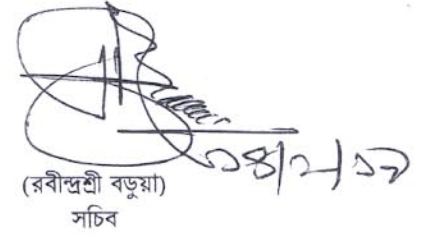 ১৪/২/১৯
(রবীন্দ্রশ্রী বড়ুয়া)
সচিব